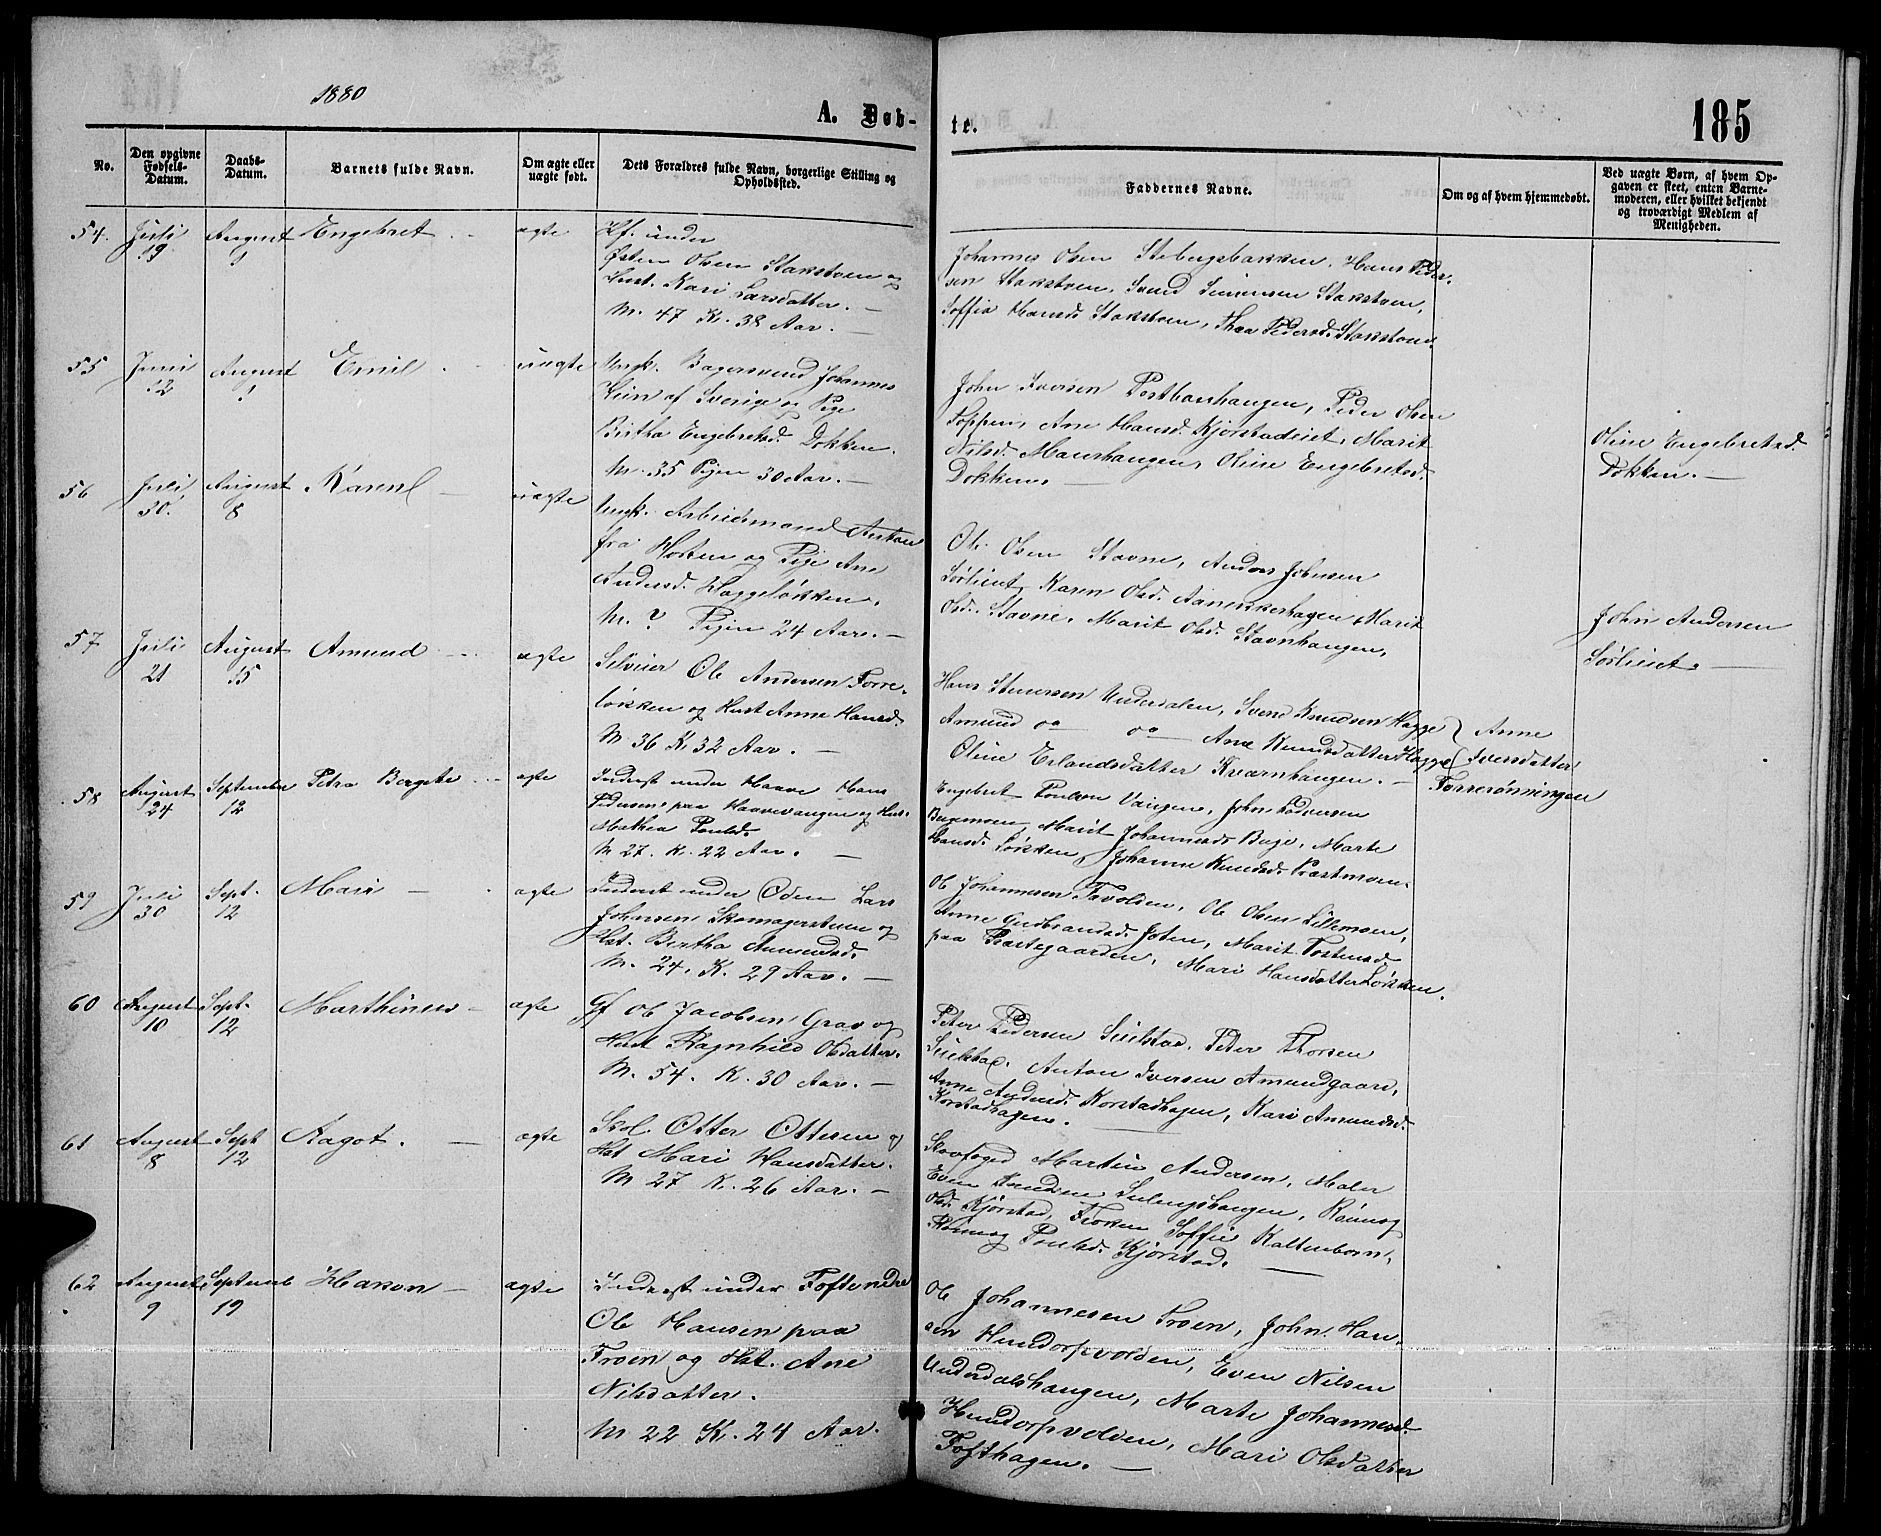 1880
A. Døb-
te.
185
No.
Den opgivne
Fødsels-
Datum.
Daabs-
Datum.
Barnets fulde Navn.
Om ægte eller
uægte født.
Dets Forældres fulde Navn, borgerlige Stilling og
Opholdssted.
Faddernes Navne.
Om og af hvem hjemmedøbt.
Ved uægte Børn, af hvem Op-
gaven er skeet, enten Barne-
moderen, eller hvilket bekjendt
og troværdigt Medlem af
Menigheden.
54.
Juli
19
August
1
Engebret
ægte
Hf. under
Østen Olsen Stakstoen og
Hust. Kari Larsdatter. —
M. 47 K. 38 Aar. —
Johannes Olsen Stebergsbakken, Hans Peder-
sen Stakstoen, Svend Simensen Stakstoen,
Soffia Hansd. Stakstoen, Thea Pedersd. Stakstoen.
55
Juni
12
August
1
Emil
uægte
Ungk. Bagersvend Johannes
af Sverige og Pige
Birtha Engebretsd. Dokken.
M. 35 Pigen 30 Aar. —
John Iversen Postbarhaugen, Peder Olsen
Toppen, Ane Hansd. Kjørstadeiet, Marit
Nilsd. Maurhaugen, Oline Engebretsd.
Dokken. —
Oline Engebretsd.
Dokken. —
56
Juli
30.
August
8
Karen
uægte
Ungk. Arbeidsmand Anton
fra Horten og Pige Ane
Andersd. Haggeløkken.
M. ? Pigen 24 Aar. —
Ole Olsen Stavne, Anders Johnsen
Sørlieiet, Karen Olsd. Aaneskerhagen, Marit
Olsd. Stavne, Marit Olsd. Stavnhaugen,
John Andersen
Sørlieiet. —
57
Juli
21
August
15
Amund
ægte
Selveier Ole Andersen Forre-
løkken og Hust Anne Hansd.
M. 36 K. 32 Aar. —
Hans Stenersen Underdalen, Svend Knudsen Hagge
Amund oo — oo — Ane Knudsdatter Hagge
Oline Erlandsdatter Kværnhaugen. —
Anne
Iversdatter
Forrerønningen
58
August
24
September
12
Petra Bergete
ægte
Inderst under Haave Hans
Pedersen paa Haavevangen og Hus.
Mathea Poulsd.
M 27. K. 22 Aar. —
Engebret Poulsen Vangen, John Pedersen
Bugemoen, Marit Johannesd. Buge, Marte
Hansd. Løkken, Johanne Knudsd. Præstmoen.
59
Juli
30
Sept.
12
Mari —
ægte
Inderst under Oden Lars
Johnsen Skomagerstuen og
Hst. Bertha Amundsd.
M. 24, K. 29 Aar. —
Ole Johannesen Tavolden, Ole Olsen Lillemoen,
Anne Gudbrandsd. Joten, Marit Tostensd.
paa Præstegaarden, Mari Hansdatter Løkken.
60
August
10
Sept.
12
Marthinus —
ægte
Gf Ole Jacobsen Grav og
Hust Ragnhild Olsdatter.
M. 54. K. 30 Aar. —
Peter Pedersen Sulstad, Peter Thorsen
Sulstad, Anton Iversen Amundgaard,
Anne Andersd. Korstadhagen, Kari Amundsd.
Korstadhagen. —
61
August
8
Sept
12
Aagot. —
ægte
Skol. Otter Ottesen og
Hst Mari Hansdatter.
M 27 K. 26 Aar. —
Skovfoged Martin Andersen, Maler
Even Knudsen Sulengshaugen, Rønnog
Olsd. Kjørstad, Frøken Soffie Kaltenborn,
Rønnog Poulsd. Kjørstad. —
62
August
9
Septemb
19
Hakon —
ægte
Inderst under Tofte nedre
Ole Hansen paa
Troen og Hst. Ane
Nilsdatter.
M 22 K. 24 Aar.
Ole Johannesen Troen, John Han-
sen Hundorpvolden, Even Nilsen
Underdalshaugen, Marte Johannesd.
Hundorpvolden, Mari Olsdatter
Tofthagen. —